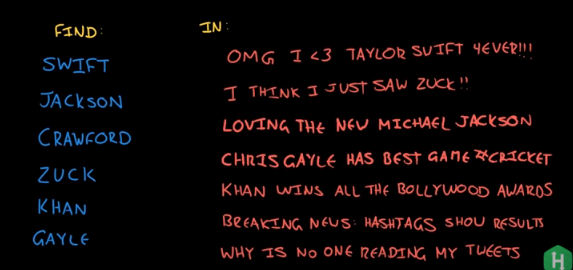 FIND:
SWIFT
JACKSON
CRAWFORD
ZUCK
KHAN
GAYLE
IN:
OMG I <3 TAYLOR SWIFT 4EVER!!!
I THINK I JUST SAW ZUCK!!
LOVING THE NEW MICHAEL JACKSON
CHRIS GAYLE HAS BEST GAME #CRICKET
KHAN WINS ALL THE BOLLYWOOD AWARDS
BREAKING NEWS: HASHTAGS SHOW RESULTS
WHY IS NO ONE READING MY TWEETS
H